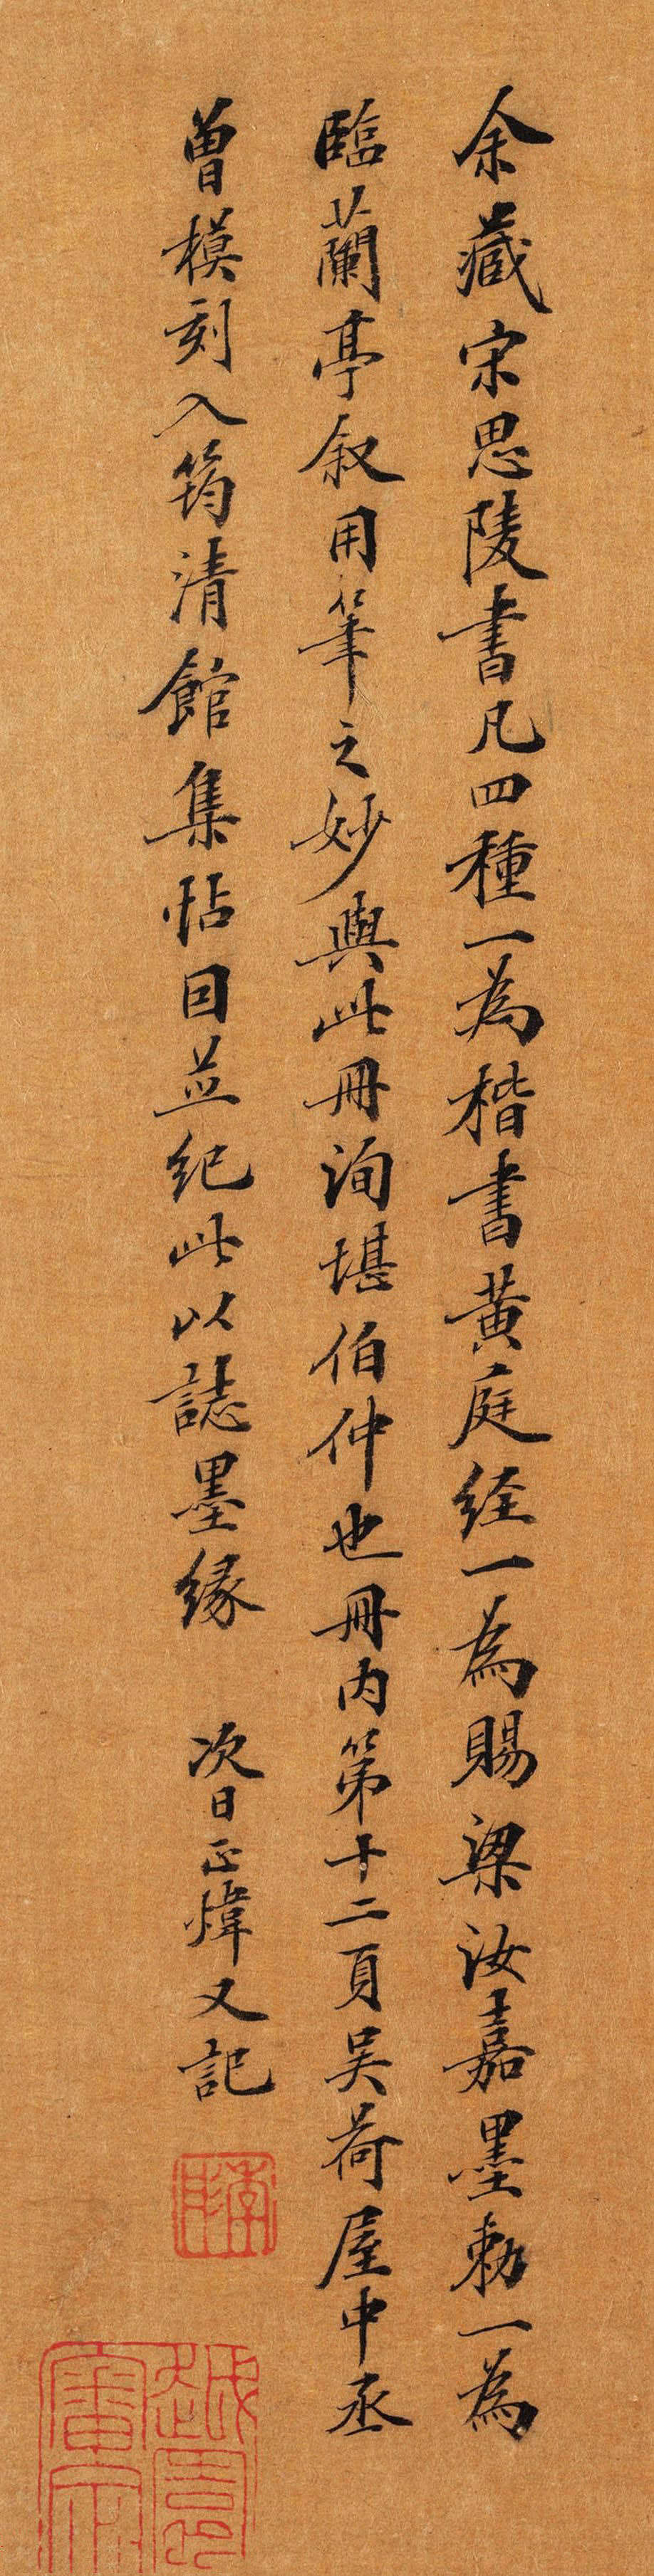 余藏宋思陵書凡四種一為楷書黃庭経一為賜梁汝嘉墨勅一為
臨蘭亭叙用筆之妙與此冊洵堪伯仲也冊内第十二頁吴荷屋中丞
曽模刻入筠清館集帖目並紀此以誌墨緣
次日正煒又記